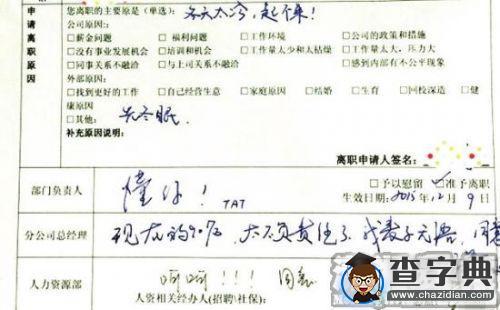 申 您离职的主要原是（单选）： 冬天太冷，起不来！
请 公司原因：
离 □薪金问题 □福利问题 □工作环境 □公司的政策和措施
职 □没有事业发展机会 □培训和机会 □工作量太少和太枯燥 □工作量太大，压力大
原 □同事关系不融洽 □与上司关系不融洽 □感到内部有不公平现象
因 外部原因：
□找到更好的工作 □自己经营生意 □家庭原因 □结婚 □生育 □回校深造 □健
康原因
□其他： 先冬眠
补充原因说明：
离职申请人签名：
部门负责人 懂你！ TAT □予以慰留 ☑准予离职
生效日期：2015年12月9日
分公司总经理 现在的90后，太不负责任了，我表示无语，同意
人力资源部 呵呵！！！ 同意
人资相关经办人(招聘\社保)：
查字典
www.chazidian.com